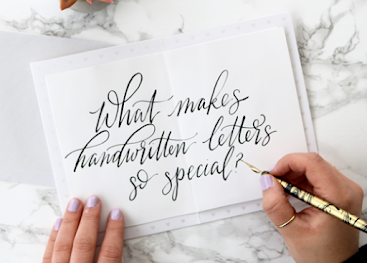 What makes
handwritten letters
so special?